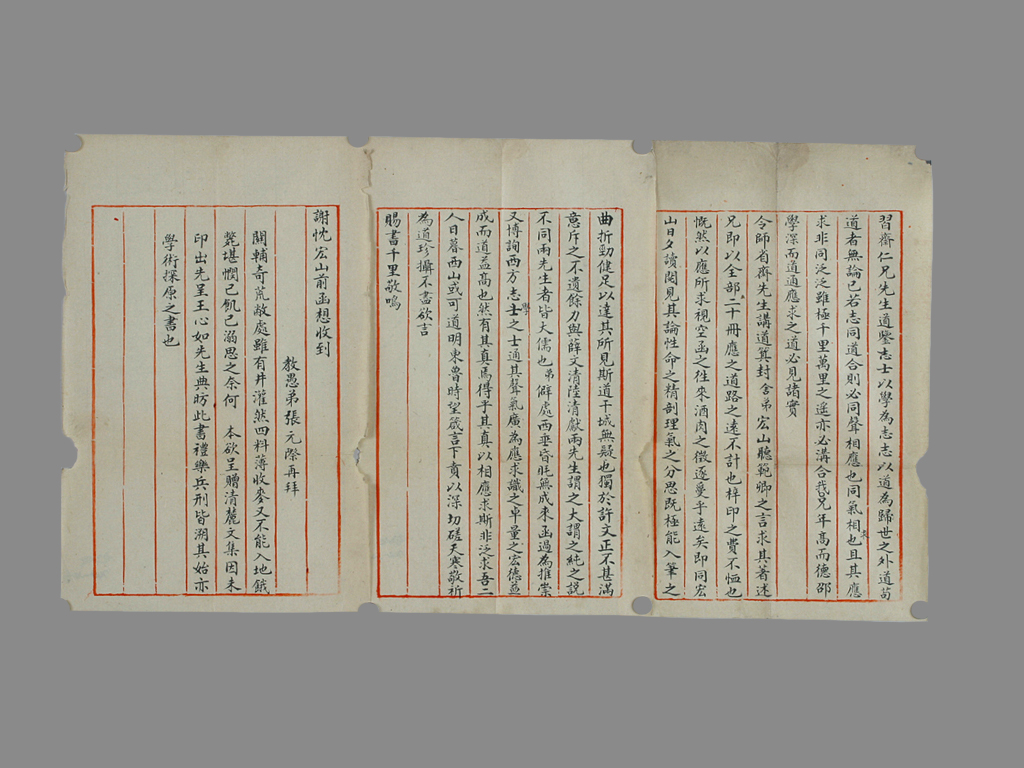 習齋仁兄先生道鑒志士以學為志志以道為歸世之外道苟
道者無論已若志同道合則必同聲相應也同氣相求也且其應
求非同泛泛雖極千里萬里之遙亦必溝合我兄年高而德邵
學深而道通應求之道必見諸實
令師省齋先生講道箕封舍弟宏山聽範卿之言求其著述
兄即以全部二十冊應之道路之遠不計也梓印之費不恤也
慨然以應所求視空函之往來酒肉之徵逐爰乎遠矣即同宏
山日夕讀閱見其論性命之精剖理氣之分思既極能入筆之
曲折勁健足以達其所見斯道干城無疑也獨於許文正不甚滿
意斥之不遺餘力與薛文清陸清獻兩先生謂之大謂之純之說
不同兩先生者皆大儒也弟僻處西垂昏眊無成來函過為推崇
又博詢西方志學之士之士通其聲氣廣為應求識之卓量之宏德益
成而道益高也然有其真焉得乎其真以相應求斯非泛求吾二
人日暮西山或可道明東魯時望箴言下賁以深切磋天寒敬祈
為道珍攝不盡欲言
賜書千里敬鳴
謝忱宏山前函想收到
教愚弟張元際再拜
關輔奇荒敝處雖有井灌然四料薄收麥又不能入地餓
斃堪憫已飢己溺思之余何 本欲呈贈清麓文集因未
印出先呈王心如先生典昉此書禮樂兵刑皆溯其始亦
學術探原之書也